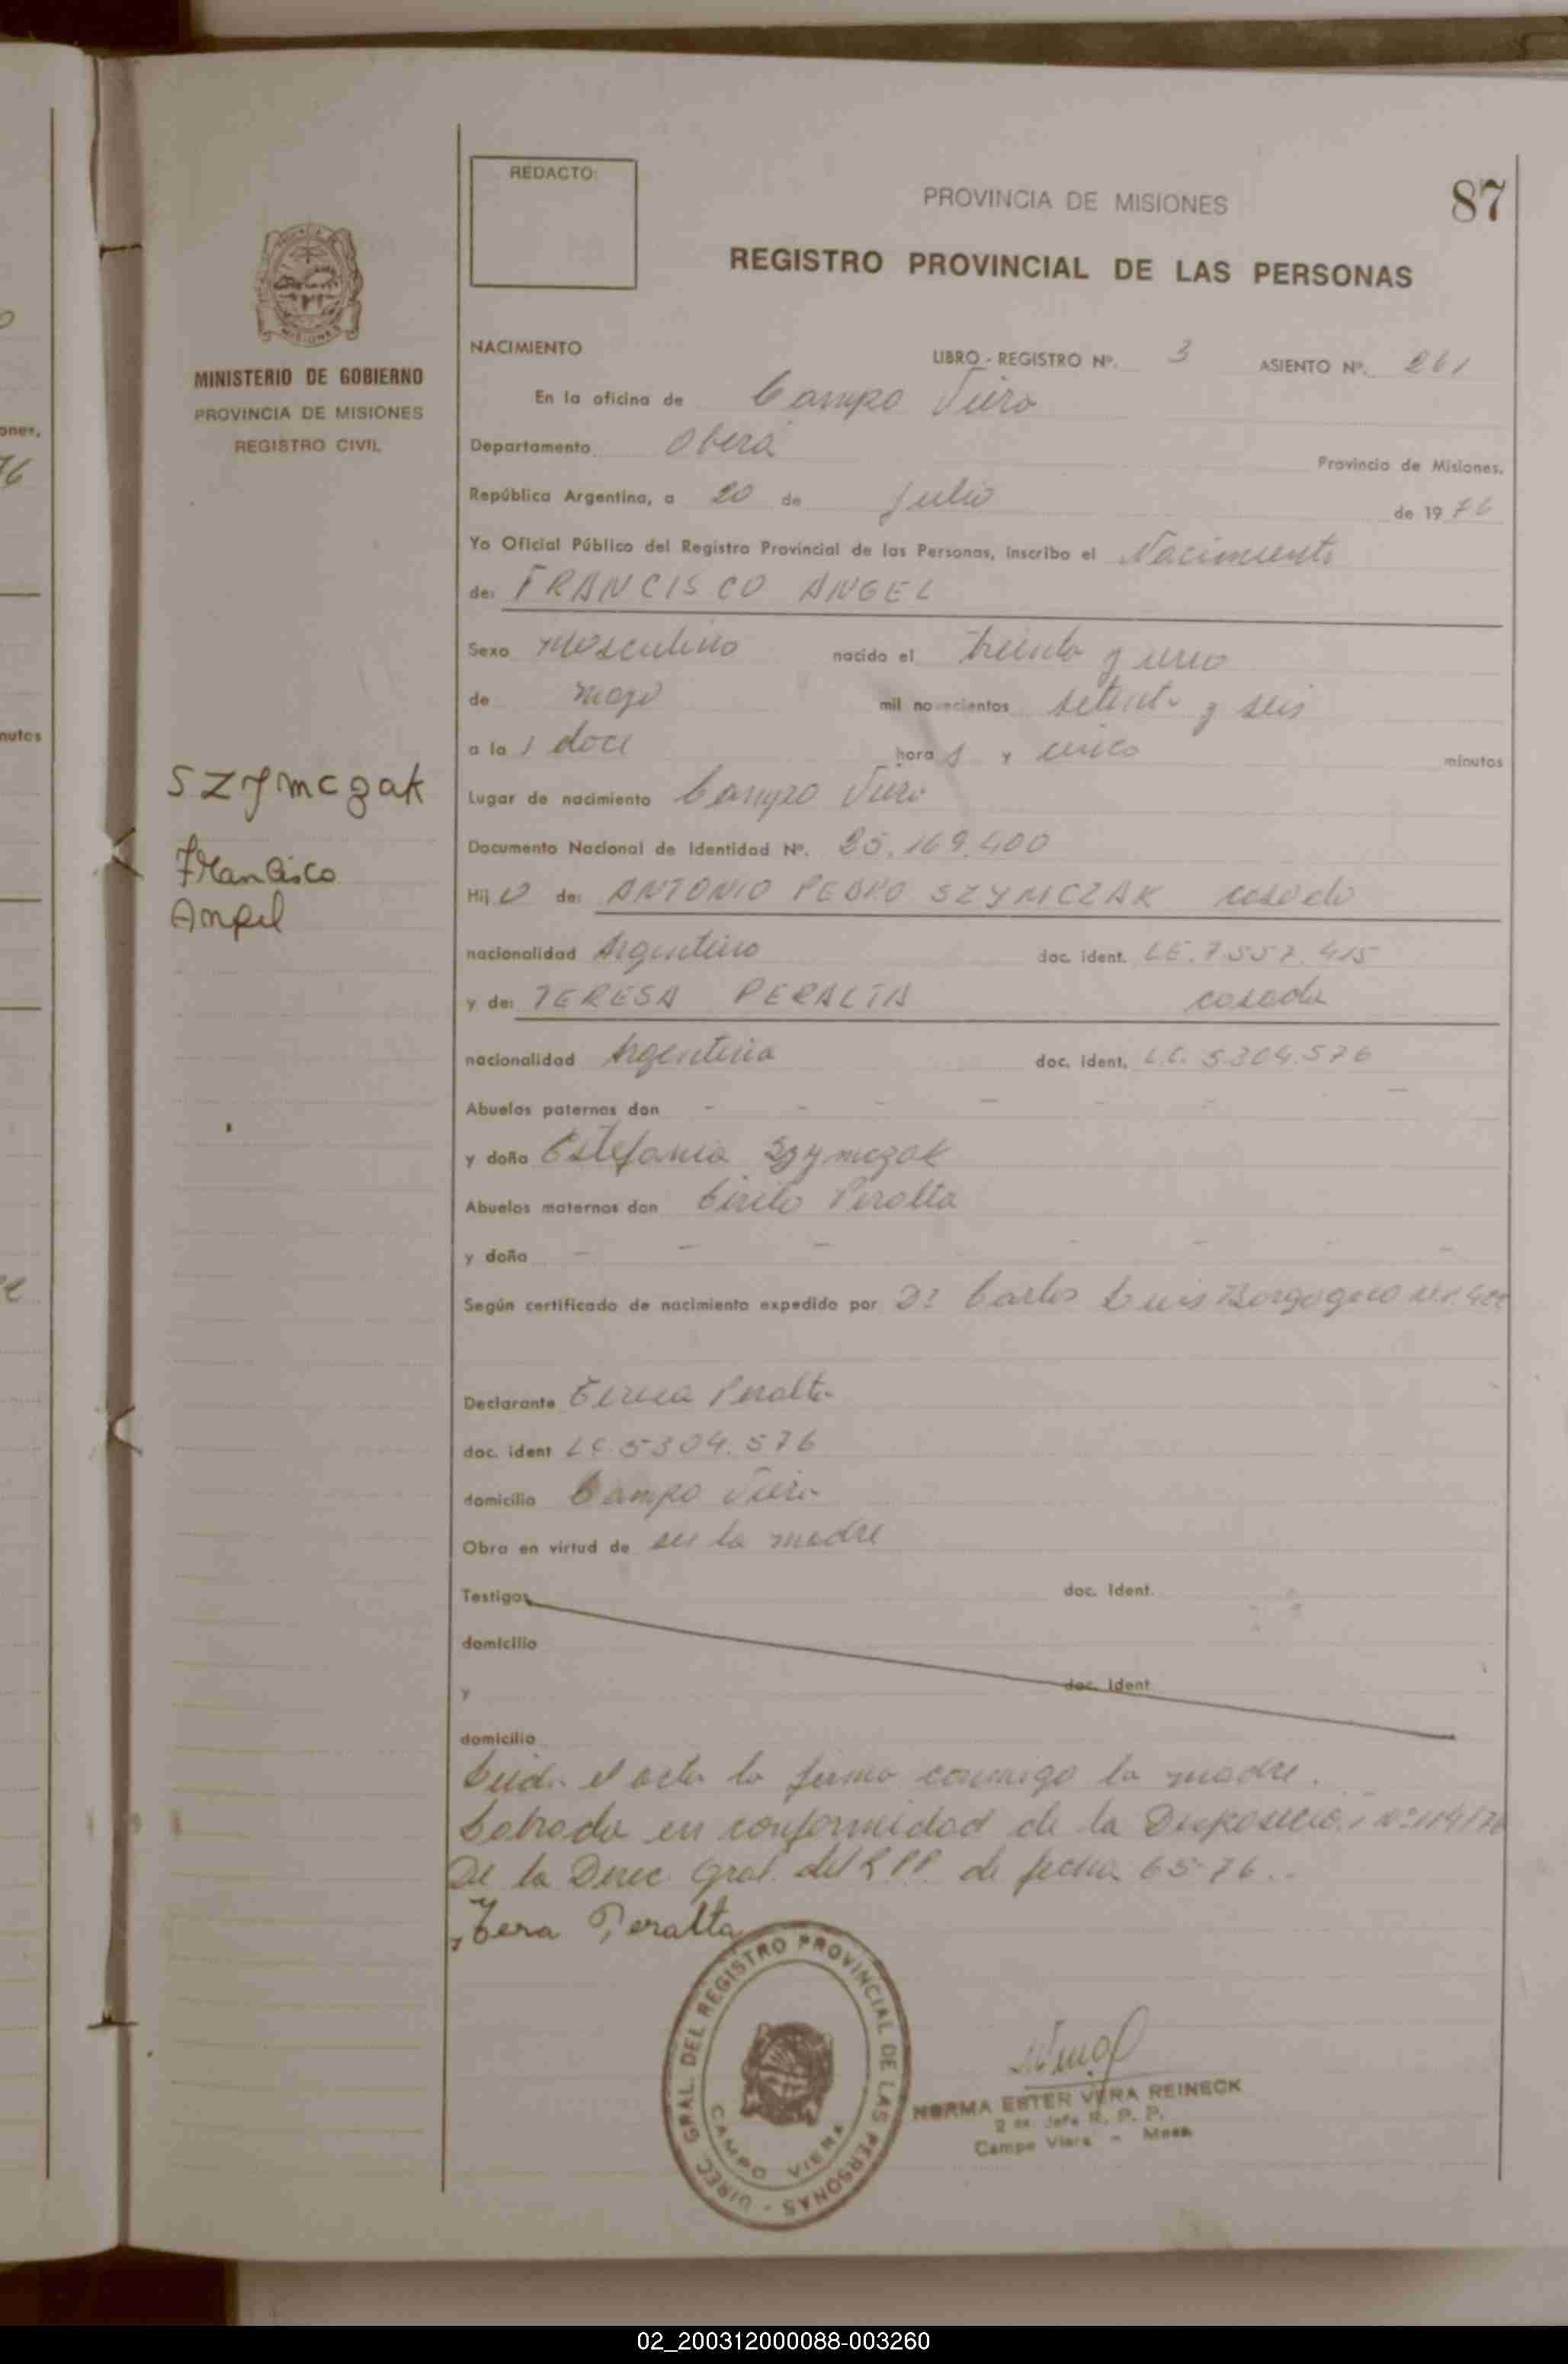 REDACTO:
PROVINCIA DE MISIONES
87
REGISTRO PROVINCIAL DE LAS PERSONAS
MISIONES
MINISTERIO DE GOBIERNO
PROVINCIA DE MISIONES
REGISTRO CIVIL
NACIMIENTO
LIBRO - REGISTRO Nº. 3 ASIENTO Nº. 261
En la oficina de Campo Viera
Departamento Oberá
Provincia de Misiones.
República Argentina, a 20 de Julio de 19 76
Yo Oficial Público del Registro Provincial de las Personas, inscribo el Nacimiento
de: FRANCISCO ANGEL
Sexo Masculino nacido el treinta y uno
de mayo mil novecientos setenta y seis
a la s doce hora s y cinco minutos
Szymczak
Francisco
Angel
Lugar de nacimiento Campo Viera
Documento Nacional de Identidad Nº. 25.169.400
Hij o de: ANTONIO PEDRO SZYMCZAK casado
nacionalidad Argentino doc. ident. LE. 7.557.415
y de: TERESA PERALTA casada
nacionalidad Argentina doc. ident. L.C. 5.304.576
Abuelos paternos don - - - - - - -
y doña Estefania Szymczak
Abuelos maternos don Cirilo Peralta
y doña - - - - - -
Según certificado de nacimiento expedido por Dr Carlos Luis Borgogno
Declarante Teresa Peralta
doc. ident LC. 5304.576
domicilio Campo Viera
Obra en virtud de ser la madre
Testigos doc. Ident.
domicilio
y doc. Ident
domicilio
Leida el acta la firma conmigo la madre.
Labrada en conformidad de la Disposición Nº 114/76
De la Direc. Gral. del R.P.P. de fecha 6-5-76..
Tera Peralta
DIREC. GRAL. DEL REGISTRO PROVINCIAL DE LAS PERSONAS -
CAMPO VIERA
NORMA ESTER VERA REINECK
Jefe R. P. P.
Campo Viera - Mnes.
02_200312000088-003260